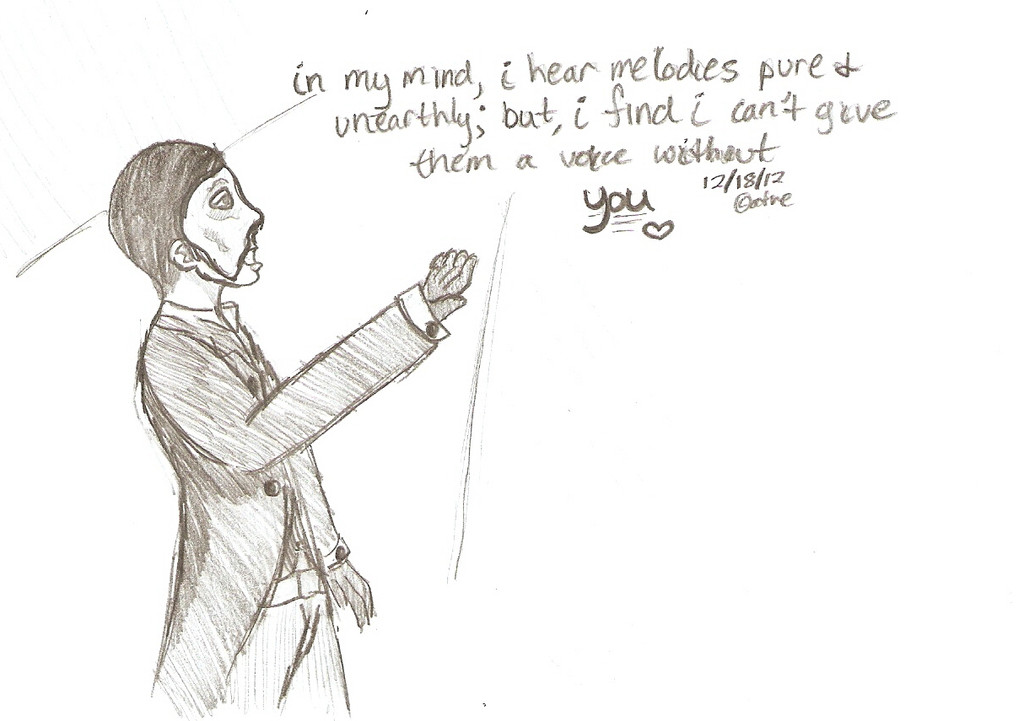 in my mind, i hear melodies pure &
unearthly; but, i find i can't give
them a voice without
you
12/18/12